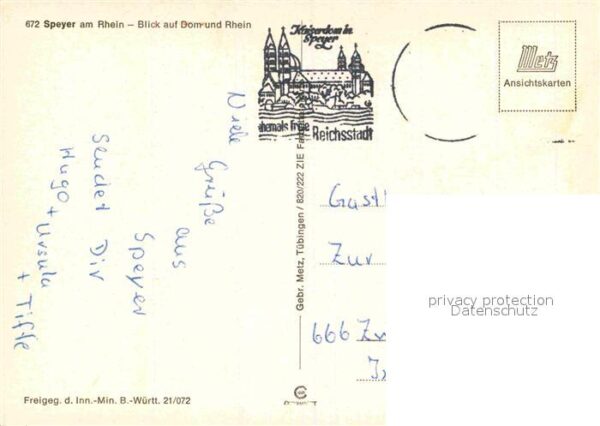 672 Speyer am Rhein – Blick auf Dom und Rhein
Kaiserdom in
Speyer
ehemals freie
Reichsstadt
Metz
Ansichtskarten
Viele Grüße
aus
Speyer
Sendet Dir
Hugo + Ursula
+ Tiffe
Gebr. Metz, Tübingen / 820/222 ZIE
Gast
Zur
666 Zw
privacy protection
Datenschutz
Freigeg. d. Inn.-Min. B.-Württ. 21/072